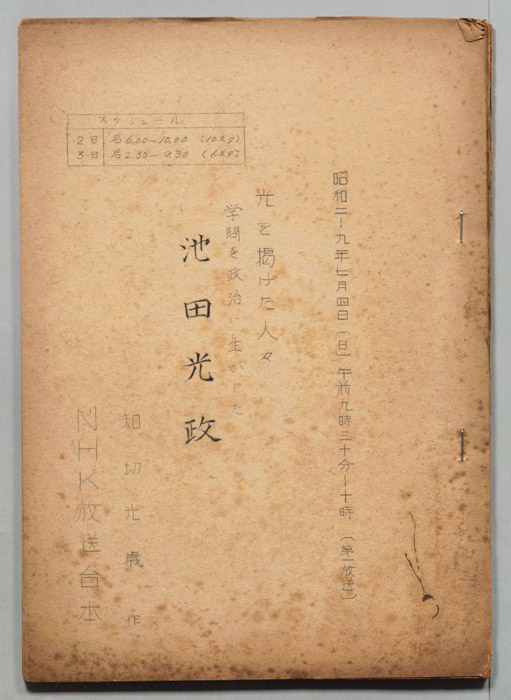 昭和二十九年七月四日(日)午前九時三十分ー十時(第一放送)
光を掲げた人々
学問を政治に生かした
池田光政
知切光歳 作
NHK放送台本
スケジュール
2日 后6.00ー10.00 (10スタ)
3日 后2.30ー9.30 (6スタ)